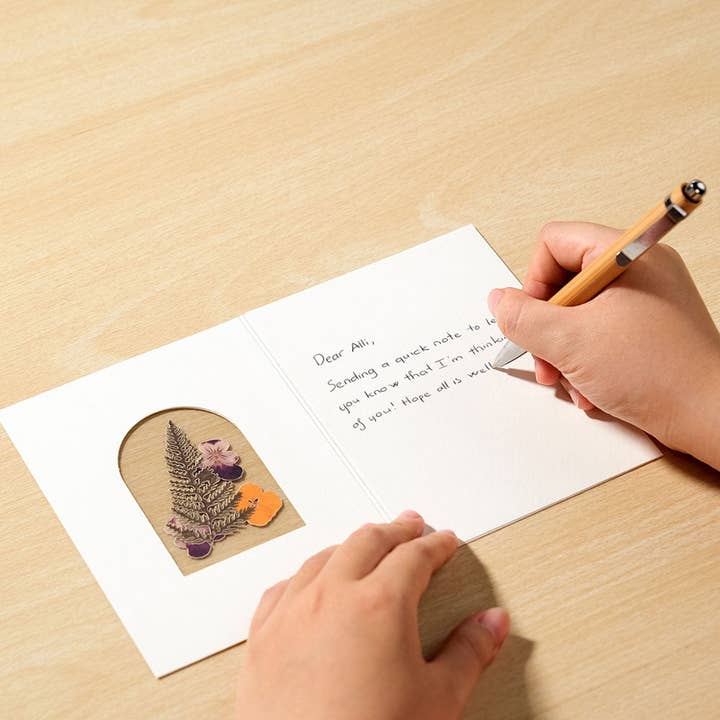 Dear Alli,
Sending a quick note to le
you know that I'm thinkin
of you! Hope all is well